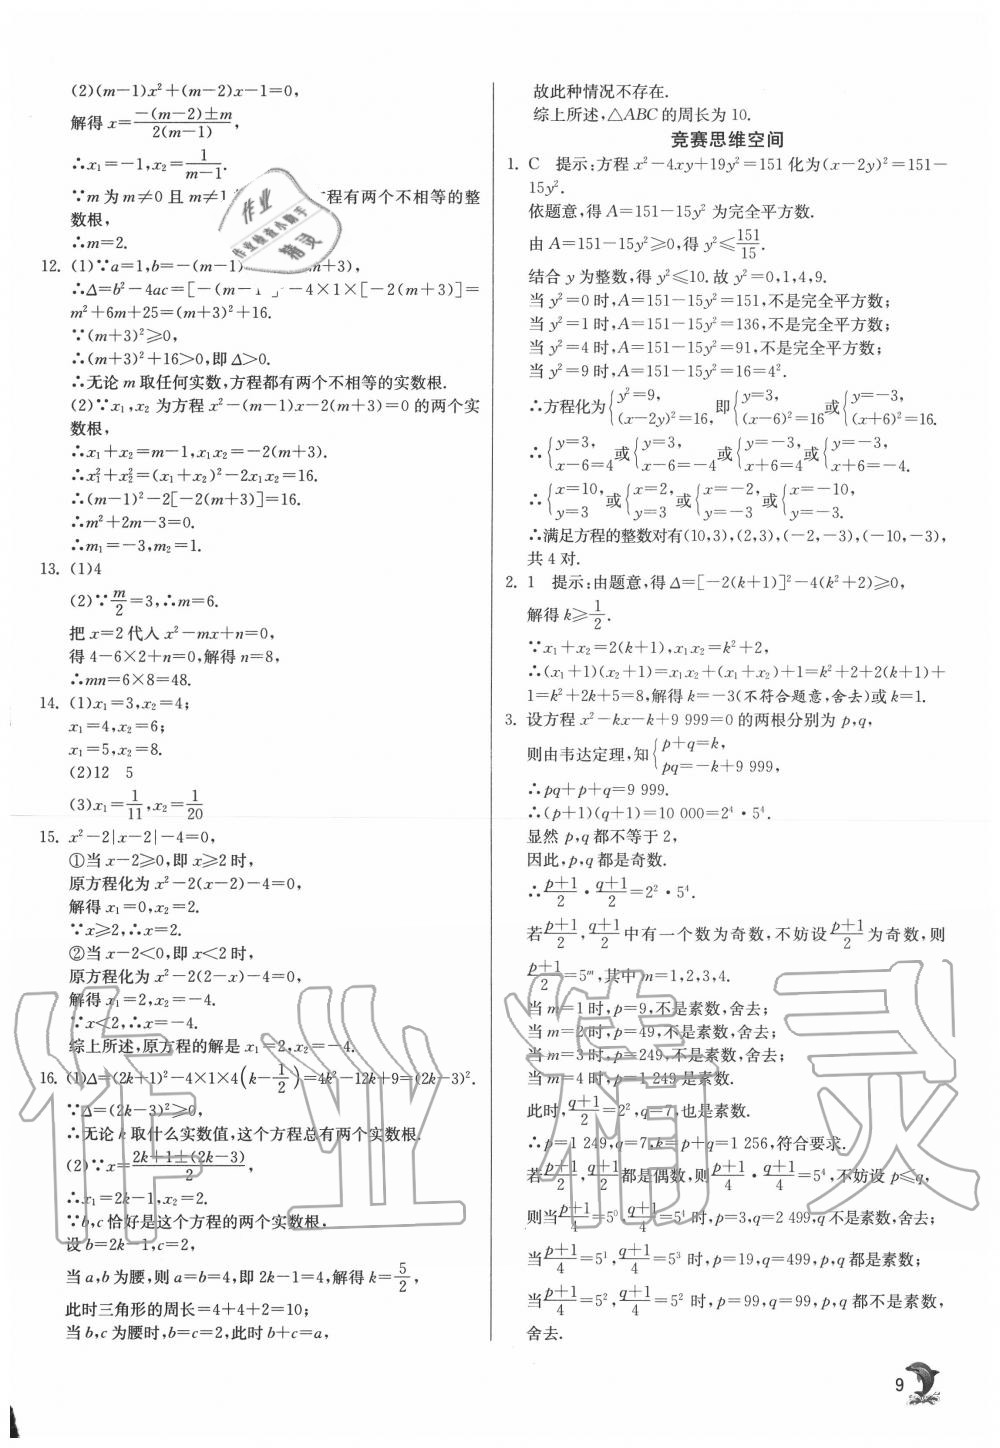 (2)(m－1)x²＋(m－2)x－1＝0,
解得 x＝\frac{－(m－2)±m}{2(m－1)},
∴x₁＝－1,x₂＝\frac{1}{m－1}.
∵m 为 m≠0 且 m≠1 程有两个不相等的整
数根,
∴m＝2.
12. (1)∵a＝1,b＝－(m－1) m＋3),
∴Δ＝b²－4ac＝[－(m－1 －4×1×[－2(m＋3)]＝
m²＋6m＋25＝(m＋3)²＋16.
∵(m＋3)²≥0,
∴(m＋3)²＋16＞0,即 Δ＞0.
∴无论 m 取任何实数,方程都有两个不相等的实数根.
(2)∵x₁,x₂ 为方程 x²－(m－1)x－2(m＋3)＝0 的两个实
数根,
∴x₁＋x₂＝m－1,x₁x₂＝－2(m＋3).
∴x₁²＋x₂²＝(x₁＋x₂)²－2x₁x₂＝16.
∴(m－1)²－2[－2(m＋3)]＝16.
∴m²＋2m－3＝0.
∴m₁＝－3,m₂＝1.
13. (1)4
(2)∵\frac{m}{2}＝3,∴m＝6.
把 x＝2 代入 x²－mx＋n＝0,
得 4－6×2＋n＝0,解得 n＝8,
∴mn＝6×8＝48.
14. (1)x₁＝3,x₂＝4;
x₁＝4,x₂＝6;
x₁＝5,x₂＝8.
(2)12 5
(3)x₁＝\frac{1}{11},x₂＝\frac{1}{20}
15. x²－2|x－2|－4＝0,
①当 x－2≥0,即 x≥2 时,
原方程化为 x²－2(x－2)－4＝0,
解得 x₁＝0,x₂＝2.
∵x≥2,∴x＝2.
②当 x－2＜0,即 x＜2 时,
原方程化为 x²－2(2－x)－4＝0,
解得 x₁＝2,x₂＝－4.
∵x＜2,∴x＝－4.
综上所述,原方程的解是 x₁＝2,x₂＝－4.
16. (1)Δ＝(2k＋1)²－4×1×4(k－\frac{1}{2})＝4k²－12k＋9＝(2k－3)².
∵Δ＝(2k－3)²≥0,
∴无论 k 取什么实数值,这个方程总有两个实数根.
(2)∵x＝\frac{2k＋1±(2k－3)}{2},
∴x₁＝2k－1,x₂＝2.
∵b,c 恰好是这个方程的两个实数根,
设 b＝2k－1,c＝2,
当 a,b 为腰,则 a＝b＝4,即 2k－1＝4,解得 k＝\frac{5}{2},
此时三角形的周长＝4＋4＋2＝10;
当 b,c 为腰时,b＝c＝2,此时 b＋c＝a,
故此种情况不存在.
综上所述,△ABC 的周长为 10.
竞赛思维空间
1. C 提示:方程 x²－4xy＋19y²＝151 化为(x－2y)²＝151－
15y².
依题意,得 A＝151－15y² 为完全平方数.
由 A＝151－15y²≥0,得 y²≤\frac{151}{15}.
结合 y 为整数,得 y²≤10.故 y²＝0,1,4,9.
当 y²＝0 时,A＝151－15y²＝151,不是完全平方数;
当 y²＝1 时,A＝151－15y²＝136,不是完全平方数;
当 y²＝4 时,A＝151－15y²＝91,不是完全平方数;
当 y²＝9 时,A＝151－15y²＝16＝4².
∴方程化为{y²＝9, (x－2y)²＝16, 即{y＝3, (x－6)²＝16 或{y＝－3, (x＋6)²＝16.
∴{y＝3, x－6＝4 或{y＝3, x－6＝－4 或{y＝－3, x＋6＝4 或{y＝－3, x＋6＝－4.
∴{x＝10, y＝3 或{x＝2, y＝3 或{x＝－2, y＝－3 或{x＝－10, y＝－3.
∴满足方程的整数对有(10,3),(2,3),(－2,－3),(－10,－3),
共 4 对.
2. 1 提示:由题意,得 Δ＝[－2(k＋1)]²－4(k²＋2)≥0,
解得 k≥\frac{1}{2}.
∵x₁＋x₂＝2(k＋1),x₁x₂＝k²＋2,
∴(x₁＋1)(x₂＋1)＝x₁x₂＋(x₁＋x₂)＋1＝k²＋2＋2(k＋1)＋
1＝k²＋2k＋5＝8,解得 k＝－3(不符合题意,舍去)或 k＝1.
3. 设方程 x²－kx－k＋9 999＝0 的两根分别为 p,q,
则由韦达定理,知{p＋q＝k, pq＝－k＋9 999,
∴pq＋p＋q＝9 999.
∴(p＋1)(q＋1)＝10 000＝2⁴·5⁴.
显然 p,q 都不等于 2,
因此,p,q 都是奇数.
∴\frac{p＋1}{2}·\frac{q＋1}{2}＝2²·5⁴.
若\frac{p＋1}{2},\frac{q＋1}{2}中有一个数为奇数,不妨设\frac{p＋1}{2}为奇数,则
\frac{p＋1}{2}＝5ᵐ,其中 m＝1,2,3,4.
当 m＝1 时,p＝9,不是素数,舍去;
当 m＝2 时,p＝49,不是素数,舍去;
当 m＝3 时,p＝249,不是素数,舍去;
当 m＝4 时,p＝1 249 是素数.
此时,\frac{q＋1}{2}＝2²,q＝7,也是素数.
∴p＝1 249,q＝7,k＝p＋q＝1 256,符合要求.
若\frac{p＋1}{2},\frac{q＋1}{2}都是偶数,则\frac{p＋1}{4}·\frac{q＋1}{4}＝5⁴,不妨设 p≤q,
则当\frac{p＋1}{4}＝5⁰,\frac{q＋1}{4}＝5⁴ 时,p＝3,q＝2 499,q 不是素数,舍去;
当\frac{p＋1}{4}＝5¹,\frac{q＋1}{4}＝5³ 时,p＝19,q＝499,p,q 都是素数;
当\frac{p＋1}{4}＝5²,\frac{q＋1}{4}＝5² 时,p＝99,q＝99,p,q 都不是素数,
舍去.
9
作业
作业检查小助手
精灵
作业精灵